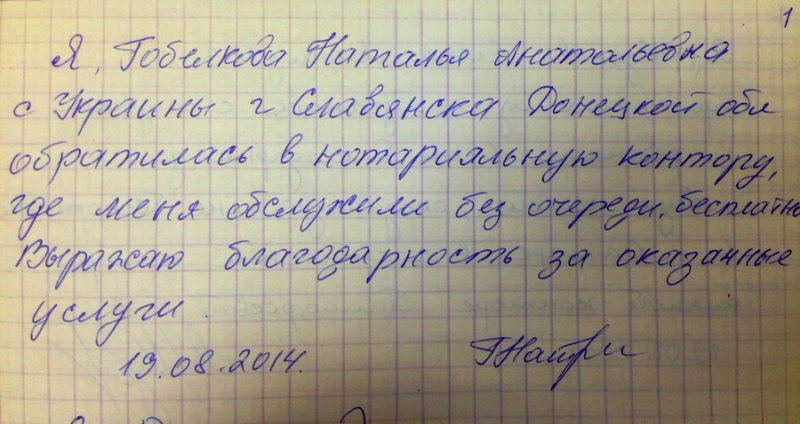 1
Я, Гобелкова Наталья Анатольевна
с Украины г. Славянска Донецкой обл
обратилась в нотариальную контору,
где меня обслужили без очереди, бесплатно
Выражаю благодарность за оказанные
услуги.
19.08.2014.